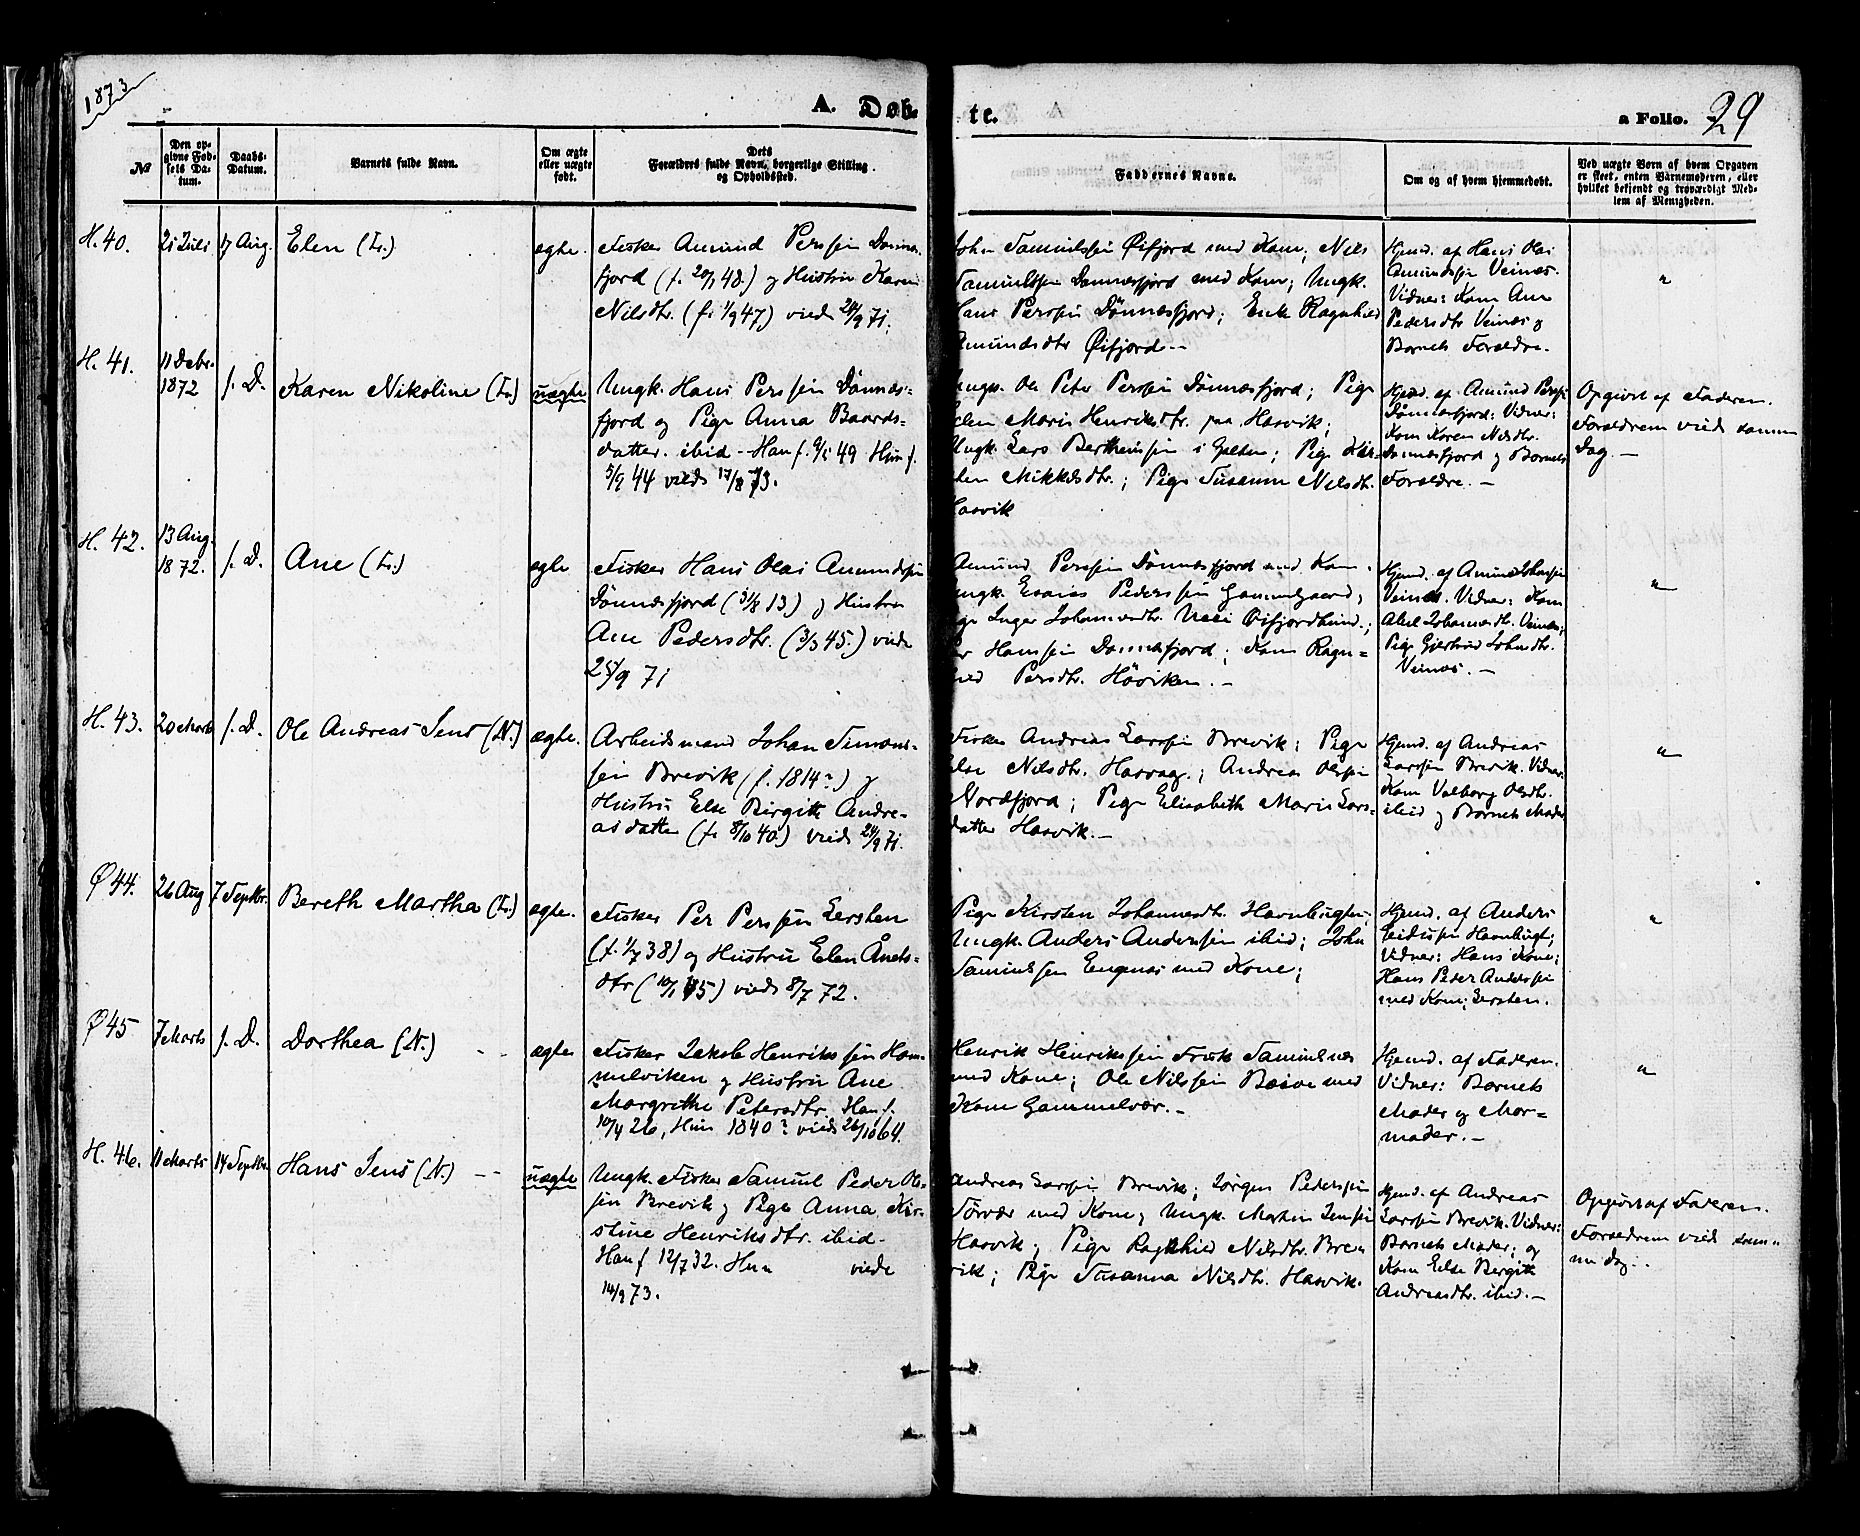 1873
A. Døb-
te.
a Folio. 29
№
Den op-
givne Fød-
sels Da-
tum.
Daabs-
Datum.
Barnets fulde Navn.
Om ægte
eller uægte
født.
Dets
Forældres fulde Navn, borgerlige Stilling
og Opholdssted.
Faddernes Navne.
Om og af hvem hjemmedøbt.
Ved uægte Børn af hvem Opgaven
er skeet, enten Barnemoderen, eller
hvilket bekjendt og troværdigt Med-
lem af Menigheden.
H. 40. 21 Juli 17 Aug. Elen (L.) ægte.
Fisker Amund Perssen Dønnes-
fjord (f. 20/1 48.) og Hustru Karen
Nilsdtr. (f. 1/9 47) viede 24/9 71.
John Samuelssen Øifjord med Kone; Nils
Samuelssen Dønnesfjord med Kone; Ungk.
Hans Perssen Dönnesfjord; Enke Ragnhild
Amundsdtr Øifjord.-
Hjemd. af Hans Olai
Amundssen Veines.
Vidner: Kone Ane
Pedersdtr Veines og
Barnets Forældre.
"
H. 41. 11 Debr.
1872 s. D. Karen Nikoline (L.) uægte
Ungk. Hans Perssen Dönnes-
fjord og Pige Anna Baards-
datter. ibid - Han f. 49 Hun f.
5/9 44 viede 17/8 73.
Ungk. Ole Peter Perssen Dönnesfjord; Pige
Elen Marie Henriksdtr. paa Hasvik;
Ungk. Lars Berthinssen i Galten; Pige Kir-
sten Mikkelsdtr.; Pige Susanna Nilsdtr.
Hasvik
Hjemd. af Amund Perss.
Dönnesfjord: Vidner:
Kone Karen Nilsdtr.
Dønnesfjord og Barnets
Forældre. -
Opgivet af Faderen.
Forældrene viede samme
Dag. -
H. 42. 13 Aug.
1872. s. D. Ane (L.) ægte
Fisker Hans Olai Amundssen
Dönnesfjord (31/8 13) og Hustru
Ane Pedersdtr. (3/3 45.) viede
25/9 71
Amund Perssen Dönnesfjord med Kone.
Ungk. Esaias Pederssen Gammelgaard;
Pige Inger Johannesdtr. Øifjordbund.;
Per Hanssen Dønnesfjord; Kone Ragn-
hild Persdtr. Håviken. -
Hjemd. af Amund Johnssen
Veines. Vidner: Kone
Abel Johannesdtr. Veines;
Pige Gjertrud Johnsdtr.
Veines. -
"
H. 43. 20 Marts s. D. Ole Andreas Jens (N.) ægte.
Arbeidsmand Johan Simons-
sen Brevik (f. 1814?) og
Hustru Else Birgitte Andre-
asdatter (f. 8/10 40.) viede 24/9 71.
Fisker Andreas Larssen Brevik; Pige
Else Nilsdtr. Hasvag.; Andreas Olssen
Nordfjord; Pige Elisabeth Marie Lars-
datter Hasvik. -
Hjemd. af Andreas
Larssen Brevik. Vidner:
Kone Valborg Olsdtr.
ibid og Barnets Moder
"
Ø 44. 26 Aug 7 Septbr. Bereth Martha (L.) ægte.
Fisker Per Perssen Lershen
(f. 1/7 38) og Hustru Elen Ånets-
dtr (10/1 45) viede 8/7 72.
Pige Kirsten Johannesdtr. Havnbugten;
Ungk. Anders Anderssen ibid; John
Samuelssen Engenes med Kone;
Hjemd. af Anders
Havnbugt;
Vidner: Hans Kone;
Hans Peder Anderssen
med Kone; Lershen.
"
Ø 45 7 Marts s. D. Dorthea (N.) ægte
Fisker Jakob Henrikssen Ham-
melviken og Hustru Ane
Margrethe Petersdtr. Han f.
10/4 26, Hun 1840? viede 26/10 64.
Henrik Henrikssen Frisk Samuelnes
med Kone; Ole Nilssen Bæsve med
Kone Gammelvær. -
Hjemd. af Faderen.
Vidner: Barnets
Moder og Mor-
moder. -
"
H. 46. 11 Marts 14 Septbr. Hans Jens (N.) -- uægte
Ungk. Fisker Samuel Peder Ols-
sen Brevik og Pige Anna Kir-
stine Henriksdtr. ibid-
Han f 12/7 32. Hun viede
14/9 73.
Andreas Larssen Brevik; Jørgen Pederssen
Sörvær med Kone; Ungk. Morten Jenssen
Hasvik; Pige Ragnhild Nilsdtr. Bre-
vik; Pige Susanna Nilsdtr. Hasvik.
Hjemd. af Andreas
Larssen Brevik. Vidner:
Barnets Moder; og
Kone Else Bergitte
Andreasdtr. ibid. -
Opgivet af Faderen.
Forældrene viede sam-
me Dag. -